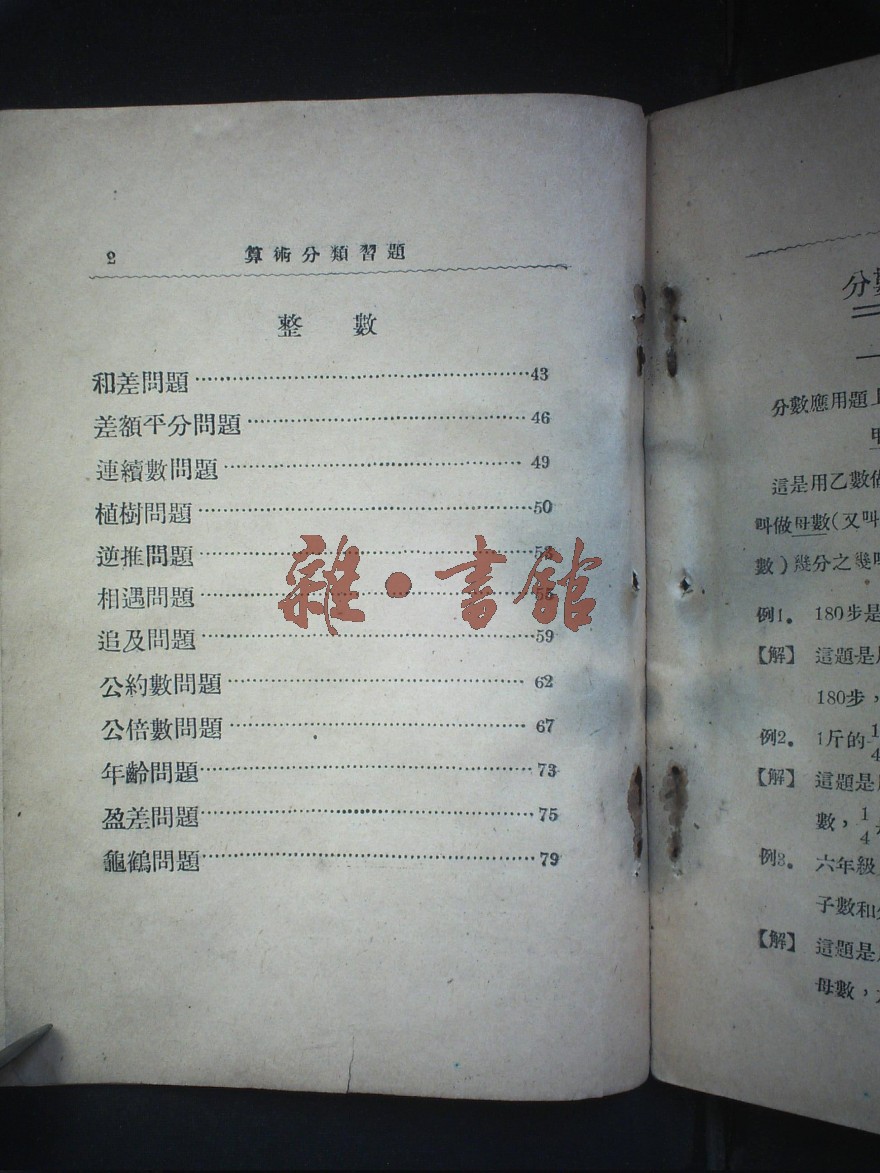 2 算術分類習題
整 數
和差問題……43
差額平分問題……46
連續數問題……49
植樹問題……50
逆推問題……53
相遇問題……55
追及問題……59
公約數問題……62
公倍數問題……67
年齡問題……73
盈差問題……75
龜鶴問題……79
雜·書館
分數
分數應用題上
這是用乙數做
叫做母數(又叫
數)幾分之幾
例1。 180步是
【解】 這題是
180步,
例2。 1斤的1/4
【解】 這題是
數,1/4
例3。 六年級
子數和
【解】 這題是
母數,